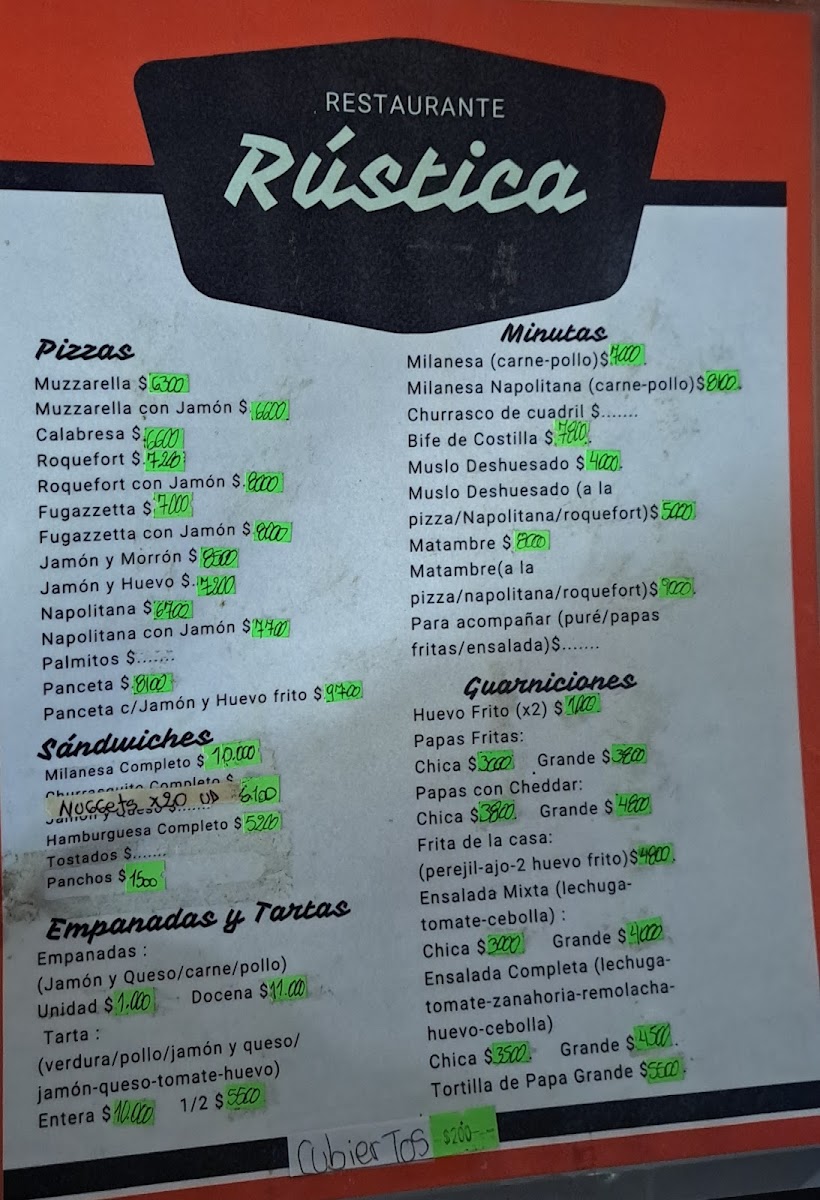 RESTAURANTE
Rústica
Pizzas
Muzzarella $ 6300
Muzzarella con Jamón $. 6600
Calabresa $. 6600
Roquefort $. 7200
Roquefort con Jamón $. 8000
Fugazzetta $ 7000
Fugazzetta con Jamón $ 8000
Jamón y Morrón $ 8500
Jamón y Huevo $. 7200
Napolitana $ 6700
Napolitana con Jamón $ 7700
Palmitos $.......
Panceta $. 8100
Panceta c/Jamón y Huevo frito $ 9700
Sándwiches
Milanesa Completo $ 10.000
Churrasquito Completo $
Nuggets x20 UD 6100
Jamón y Queso $.......
Hamburguesa Completo $ 5200
Tostados $.......
Panchos $ 1500
Empanadas y Tartas
Empanadas :
(Jamón y Queso/carne/pollo)
Unidad $ 1.000 Docena $ 11.000
Tarta :
(verdura/pollo/jamón y queso/
jamón-queso-tomate-huevo)
Entera $ 10.000 1/2 $ 5500
Minutas
Milanesa (carne-pollo)$ 7000.
Milanesa Napolitana (carne-pollo)$ 8100.
Churrasco de cuadril $.......
Bife de Costilla $ 7800.
Muslo Deshuesado $ 4000.
Muslo Deshuesado (a la
pizza/Napolitana/roquefort)$ 5000
Matambre $ 8000
Matambre(a la
pizza/napolitana/roquefort)$ 9000.
Para acompañar (puré/papas
fritas/ensalada)$.......
Guarniciones
Huevo Frito (x2) $ 1,000
Papas Fritas:
Chica $ 3000 Grande $ 3800
Papas con Cheddar:
Chica $ 3800. Grande $ 4800
Frita de la casa:
(perejil-ajo-2 huevo frito)$ 4800.
Ensalada Mixta (lechuga-
tomate-cebolla) :
Chica $ 3000 Grande $ 4000
Ensalada Completa (lechuga-
tomate-zanahoria-remolacha-
huevo-cebolla)
Chica $ 3500. Grande $ 4500.
Tortilla de Papa Grande $ 5500.
CubierTos $200-